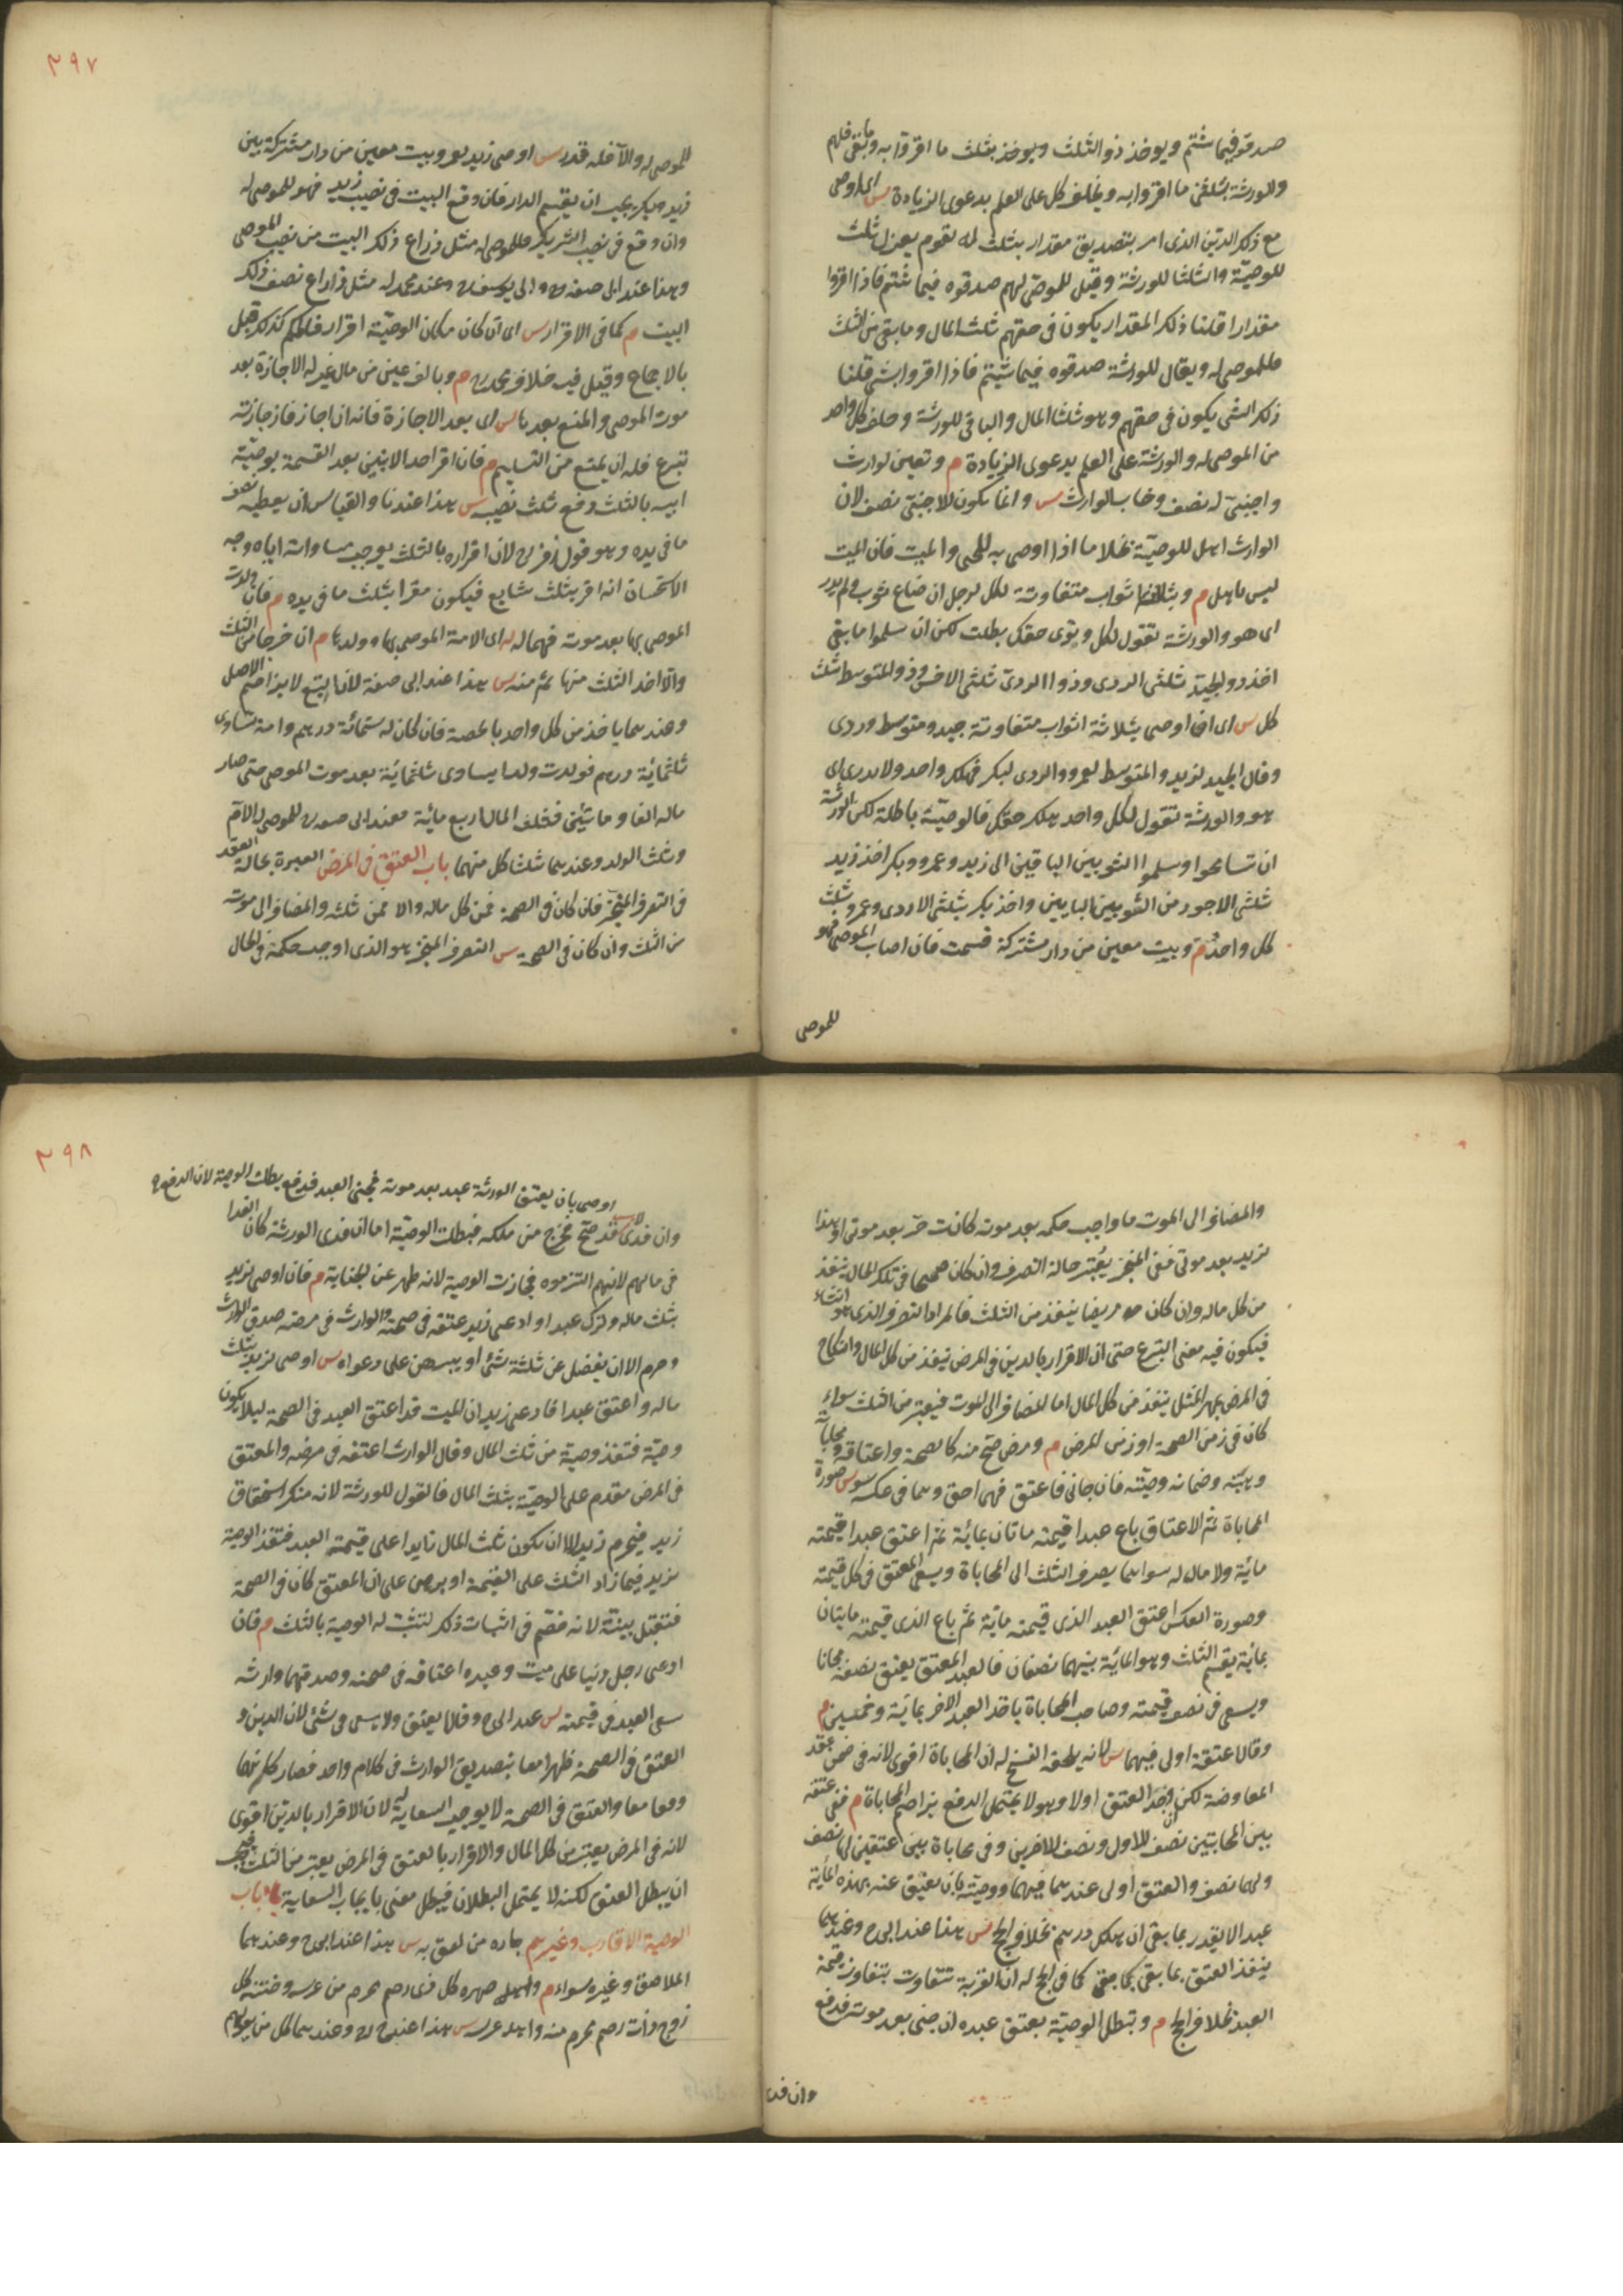 صدقوه فيما شئتم ويوخذ ذو الثلث ويوخذ بثلث ما اقروا به وما بقى فلهم
والورثة بثلثى ما اقروا به ويحلف كل على العلم بدعوى الزيادة س اى اوصى
مع ذلك الدين الذى امر بتصديق مقدار بثلث ماله لقوم يعزل ثلث
للوصية والثلثا للورثة وقيل للموصى لهم صدقوه فيما شئتم فاذا اقروا
مقدارا قلنا ذلك المقدار يكون فى حقهم ثلث المال وما بقى من الثلث
فللموصى له ويقال للورثة صدقوه فيما شيتم فاذا اقروا بشى قلنا
ذلك الشى يكون فى حقهم وهو ثلثا المال والباقى للورثة وحلف كل واحد
من الموصى له والورثة على العلم بدعوى الزيادة م وبعين لوارث
واجنبى له نصف وخاب الوارث س وانما يكون للاجنبى نصف لان
الوارث اهل للوصية بخلاف ما اذا اوصى به للحى والميت فان الميت
ليس باهل م وبثلثة اثواب متفاوتة لكل لرجل ان ضاع ثوب ولم يدر
اى هو والورثة تقول لكل توى حقك بطلت لكن ان سلموا ما بقى
اخذ ذو الجيد ثلثى الردى وذو الردى ثلثى الاخس وذو المتوسط ثلث
كل س اى ان اوصى بثلاثة اثواب متفاوتة جيد ومتوسط وردى
وقال الجيد لزيد والمتوسط لعمرو والردى لبكر فهلك واحد ولا يدرى اى
هو والورثة تقول لكل واحد هلك حقك فالوصية باطلة لكن الورثة
ان تسامحوا وسلموا الثوبين الباقيين الى زيد وعمرو وبكر اخذ زيد
ثلثى الاجود من الثوبين الباقيين واخذ بكر ثلثى الاردى وعمرو ثلث
كل واحد م وبيت معين من دار مشتركة قسمت فان اصاب الموصى فهو
للموصى
٣٩٧
للموصى له والا فله قدره س اوصى زيد لعمرو ببيت معين من دار مشتركة بين
زيد وبكر يجب ان يقسم الدار فان وقع البيت فى نصيب زيد فهو للموصى له
وان وقع فى نصيب الشريك فللموصى له مثل ذراع ذلك البيت من نصيب الموصى
وهذا عند ابى حنيفة وابى يوسف وعند محمد له مثل ذراع نصف ذلك
البيت م كما فى الاقرار س اى ان كان مكان الوصية اقرار فالحكم كذلك قيل
بالاجماع وقيل فيه خلاف محمد م وبالف عين من مال غير له الاجازة بعد
موت الموصى والمنع بعدها س اى بعد الاجازة فانه ان اجاز فاجازته
تبرع فله ان يمتنع من التسليم م فان اقر احد الابنين بعد القسمة بوصية
ابيه بالثلث دفع ثلث نصيبه س هذا عندنا والقياس ان يعطيه نصف
ما فى يده وهو قول زفر لان اقراره بالثلث يوجب مساواته اياه وجه
الاستحسان انه اقر بثلث شايع فيكون مقرا بثلث ما فى يده م فان ولدت
الموصى بها بعد موته فهما له اى الامة الموصى بها وولدها م ان خرجا من الثلث
والا اخذ الثلث منها ثم منه س هذا عند ابى حنيفة لان التبع لا يزاحم الاصل
وعندهما ياخذ من كل واحد بالحصة فان كان له ستمائة درهم وامة تساوى
ثلثمائة درهم فولدت ولدا يساوى ثلثمائة بعد موت الموصى حتى صار
ماله الفا ومائتين فثلث المال اربع مائة فعند ابى حنيفة للموصى له الام
وثلث الولد وعندهما ثلثا كل منهما باب العتق فى المرض العبرة بحالة العقد
فى التصرف المنجز فان كان فى الصحة فمن كل ماله والا فمن ثلثه والمضاف الى موته
من الثلث وان كان فى الصحة س التصرف المنجز هو الذى اوجب حكمه فى الحال
والمضاف الى الموت ما اوجب حكمه بعد موته كانت حر بعد موتى او هذا
لزيد بعد موتى ففى المنجز يعتبر حالة التصرف وان كان صحيحا فى تلك الحال ينفذ
من كل ماله وان كان مريضا ينفذ من الثلث فالمراد التصرف الذى هو انشاء
فيكون فيه معنى التبرع حتى ان الاقرار بالدين فى المرض ينفذ من كل المال والنكاح
فى المرض بمهر المثل ينفذ من كل المال اما المضاف الى الموت فيعتبر من الثلث سواء
كان فى زمن الصحة او زمن المرض م ومرض صح منه كالصحة واعتاقه ومحاباته
وهبته وضمانه وصيته فان حابى فاعتق فهى احق وهما فى عكسه سواء س صورة
المحاباة ثم الاعتاق باع عبدا قيمته ماتان بمائة ثم اعتق عبدا قيمته
مائة ولا مال له سواهما يصرف الثلث الى المحاباة ويسعى المعتق فى كل قيمته
وصورة العكس اعتق العبد الذى قيمته مائة ثم باع الذى قيمته مايتان
بمائة يقسم الثلث وهو المائة بينهما نصفان فالعبد المعتق يعتق نصفه مجانا
ويسعى فى نصف قيمته وصاحب المحاباة ياخذ العبد الاخر بمائة وخمسين م
وقالا عتقه اولى فيهما س لانه لا يلحقه الفسخ له ان المحاباة اقوى لانه فى ضمن عقد
المعاوضة لكن ان وجد العتق اولا وهو لا يحتمل الدفع يزاحم المحاباة م ففى عتقه
بين المحابتين نصف للاول ونصف للاخرين وفى محاباة بين عتقين لها نصف
ولهما نصف والعتق اولى عندهما فيهما ووصيته بان يعتق عنه بهذه المائة
عبد لا يقدر بما بقى ان هلك درهم بخلاف الحج س هذا عند ابى ح وعندهما
ينفذ العتق بما بقى كما فى الحج له ان القربة تتفاوت بتفاوت قيمة
العبد بخلاف الحج م وتبطل الوصية بعتق عبده ان جنى بعد موته فدفع
وان فدى
٣٩٨
اوصى بان يعتق الورثة عبده بعد موته فجنى العبد فدفع بطلت الوصية لان الدفع
وان فدى لا س قد صح فخرج من ملكه فبطلت الوصية اما ان فدى الورثة كان الفدا
فى مالهم لانهم التزموه فجازت الوصية لانه طهر عن الجناية م فان اوصى لزيد
بثلث ماله وترك عبدا وادعى زيد عتقه فى صحته والوارث فى مرضه صدق الوارث
وحرم الا ان يفضل عن ثلثه شئ او يبرهن على دعواه س اوصى لزيد بثلث
ماله واعتق عبدا فادعى زيد ان الميت قد اعتق العبد فى الصحة ليلا يكون
وصية فتنفذ وصيته من ثلث المال وقال الوارث اعتقه فى مرضه والمعتق
فى المرض مقدم على الوصية بثلث المال فالقول للورثة لانه منكر استحقاق
زيد فيحرم زيد الا ان يكون ثلث المال زايدا على قيمة العبد فتنفذ الوصية
لزيد فيما زاد الثلث على القيمة او برهن على ان المعتق كان فى الصحة
فتقبل بينته لانه خصم فى اثبات ذلك لتثبت له الوصية بالثلث م فان
ادعى رجل دينا على ميت وعبده اعتاقه فى صحته وصدقهما وارثه
سعى العبد فى قيمته س عند ابى ح وقالا يعتق ولا يسعى فى شئ لان الدين و
العتق فى الصحة ظهرا معا بتصديق الوارث فى كلام واحد فصار كانهما
وقعا معا والعتق فى الصحة لا يوجب السعاية له لان الاقرار بالدين اقوى
لانه فى المرض يعتبر من كل المال والاقرار بالعتق فى المرض يعتبر من الثلث فيجب
ان يبطل العتق لكنه لا يحتمل البطلان فيبطل معنى بايجاب السعاية باب
الوصية للاقارب وغيرهم جاره من لصق به س هذا عند ابى ح وعندهما
الملاصق وغيره سواء م واصهاره كل ذى رحم محرم من عرسه وختنه كل
زوج ذات رحم محرم منه واهله عرسه س هذا عند ابى ح وعندهما كل من يعولهم